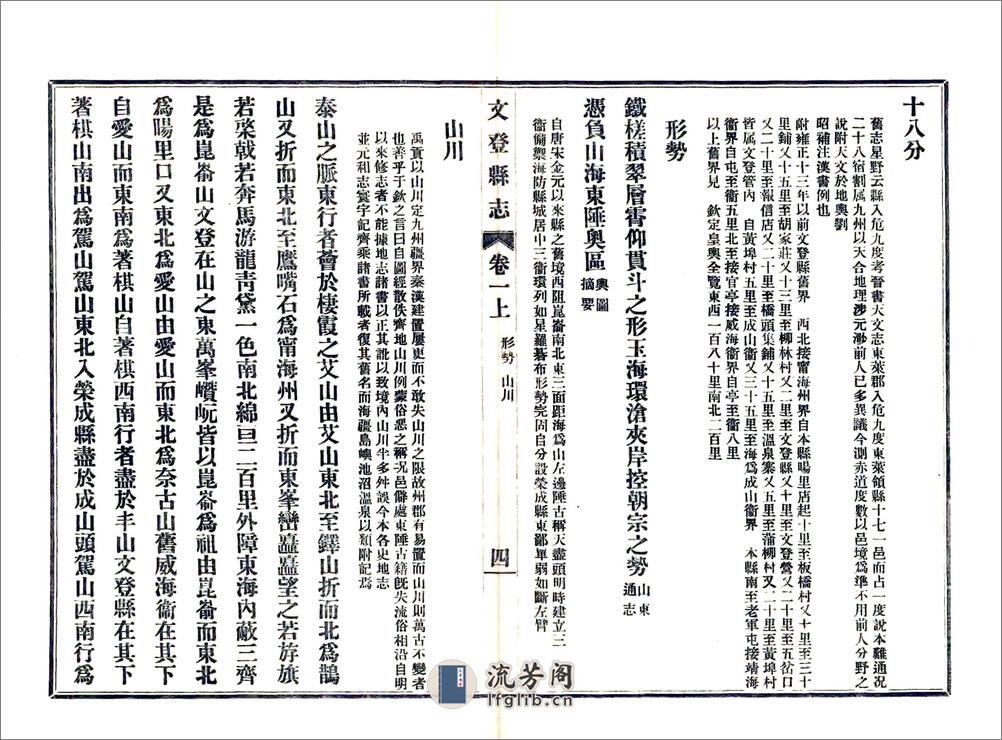 十八分
舊志星野云縣入危九度考晉書天文志東萊郡入危九度東萊領縣十七一邑而占一度說本難通況
二十八宿割属九州以天合地理涉元渺前人已多異議今測赤道度數以邑境爲準不用前人分野之
說附天文於地輿劉
昭補注漢書例也
附雍正十三年以前文登縣舊界　西北接甯海州界自本縣暘里店起十里至板橋村又十里至三十
里鋪又十五里至胡家莊又十三里至柳林村又二里至文登縣又十里至文登營又二十里至五岔口
又二十里至報信店又二十里至橋頭集鋪又十五里至溫泉寨又五里至蒲柳村又二十里至黃埠村
皆属文登管內　自黃埠村五里至成山衞又三十五里至海爲成山衞界　本縣南至老軍屯接靖海
衞界自屯至衞五里北至接官亭接威海衞界自亭至衞八里
以上舊界見　欽定皇輿全覽東西一百八十里南北二百里
形勢
鐵槎積翠層霄仰貫斗之形玉海環滄夾岸控朝宗之勢山東通志
憑負山海東陲奧區輿圖摘要
自唐宋金元以來縣之舊境西阻崑崳南北東三面距海爲山左邊陲古稱天盡頭明時建立三
衞備禦海防縣城居中三衞環列如星羅碁布形勢完固自分設榮成縣東鄙單弱如斷左臂
山川
禹貢以山川定九州疆界秦漢建置屢更而不敢失山川之限故州郡有易置而山川則萬古不變者
也善乎于欽之言曰自圖經散佚齊地山川例蒙俗惡之稱况邑僻處東陲古籍旣失流俗相沿自明
以來修志者不能據地志諸書以正其訛以致境內山川半多舛誤今本各史地志
並元和志寰宇記齊乘諸書所載者復其舊名而海疆島嶼池沼溫泉以類附記焉
文登縣志　卷一上　形勢　山川　四
泰山之脈東行者薈於棲霞之艾山由艾山東北至鐸山折而北爲鵲
山又折而東北至鷹嘴石爲甯海州又折而東峯巒矗矗望之若斿旗
若棨戟若奔馬游龍靑黛一色南北綿亘二百里外障東海內蔽三齊
是爲崑崳山文登在山之東萬峯巑岏皆以崑崳爲祖由崑崳而東北
爲暘里口又東北爲爲愛山由愛山而東北爲奈古山舊威海衞在其下
自愛山而東南爲著棋山自著棋西南行者盡於丰山文登縣在其下
著棋山南出爲駕山駕山東北入榮成縣盡於成山頭駕山西南行爲
流芳阁
lfglib.cn